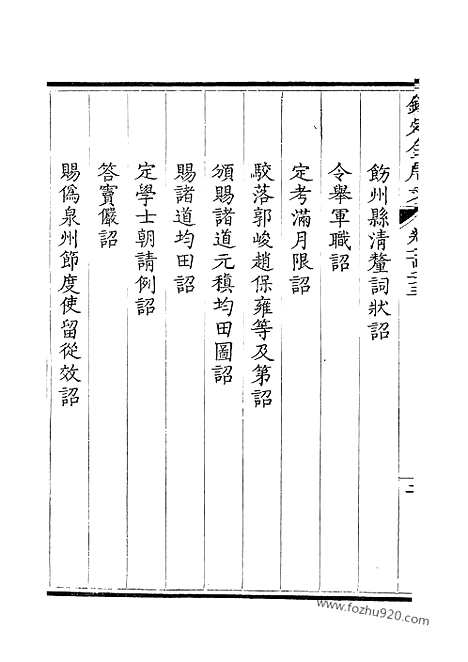 欽定全唐文 卷一百二十五 二
飭州縣清釐詞狀詔
令舉軍職詔
定考滿月限詔
駮落郭峻趙保雍等及第詔
頒賜諸道元稹均田圖詔
賜諸道均田詔
定學士朝請例詔
答竇儼詔
賜偽泉州節度使留從效詔
www.fozhu920.com